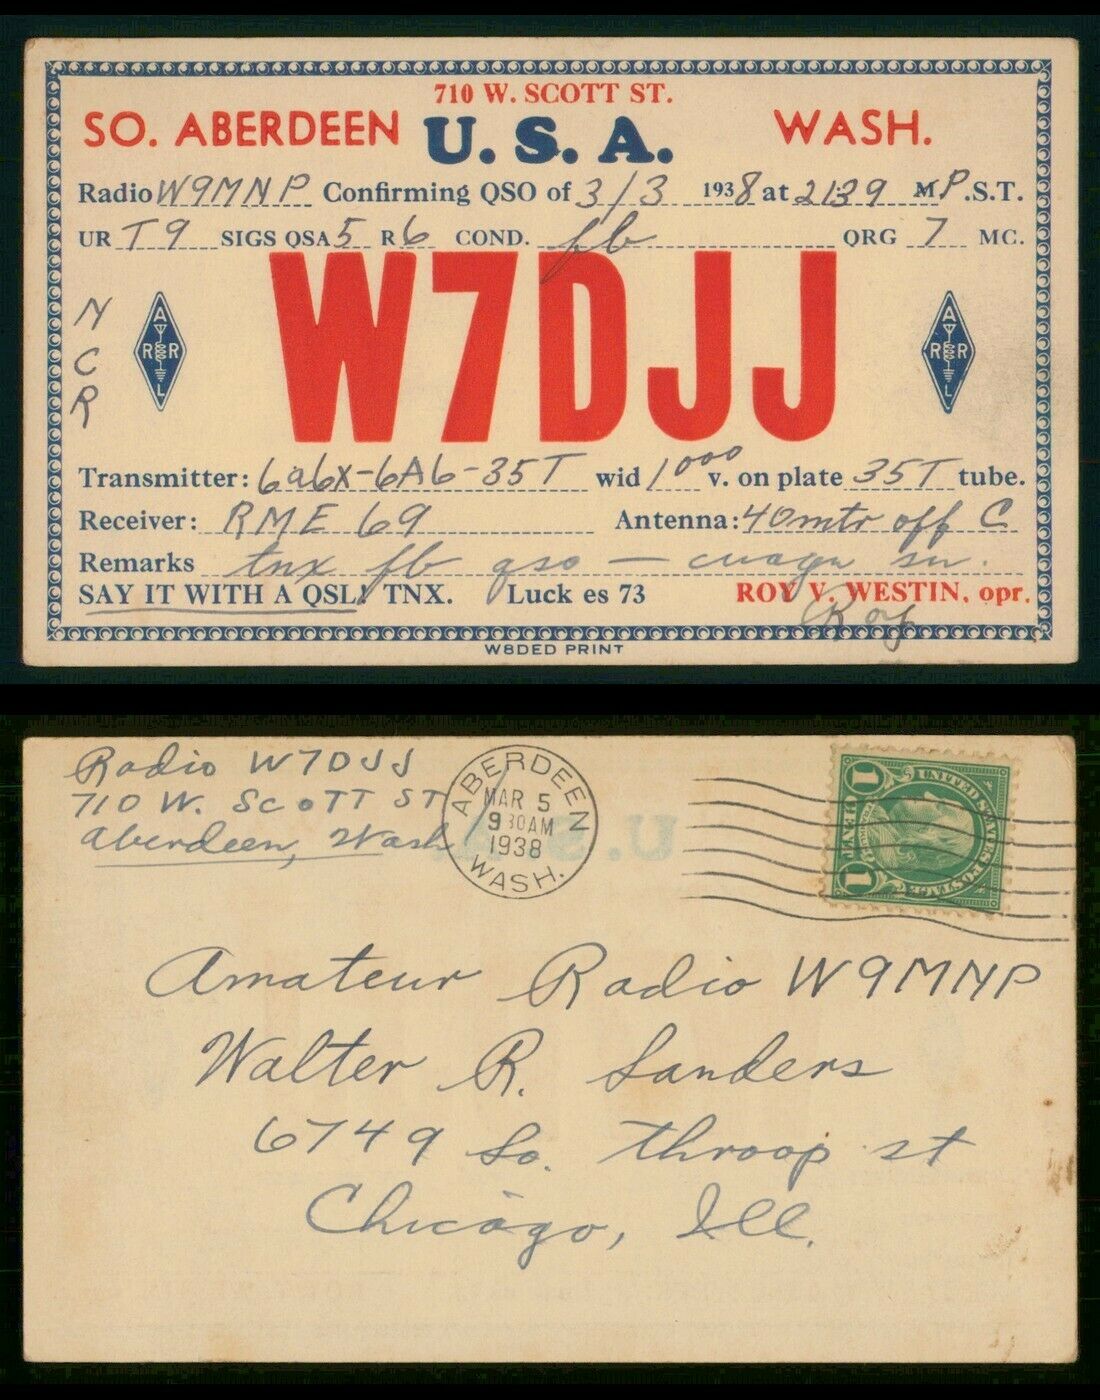 710 W. SCOTT ST.
SO. ABERDEEN U. S. A. WASH.
Radio W9MNP Confirming QSO of 3/3 1938 at 2139 M P.S.T.
UR T9 SIGS QSA 5 R 6 COND. fb QRG 7 MC.
W7DJJ
N
C
R
A
R R
L
A
R R
L
Transmitter: 6a6x-6A6-35T wid 1000 v. on plate 35T tube.
Receiver: RME 69 Antenna: 40 mtr off C
Remarks tnx fb qso — cuagn sn.
SAY IT WITH A QSL! TNX. Luck es 73 ROY V. WESTIN, opr.
Roy
W8DED PRINT
Radio W7DJJ
710 W. SCOTT ST
Aberdeen, Wash
ABERDEEN
MAR 5
9 30 AM
1938
WASH.
UNITED STATES POSTAGE
1 1
U. S. A.
Amateur Radio W9MNP
Walter R. Sanders
6749 So. Throop st
Chicago, Ill.